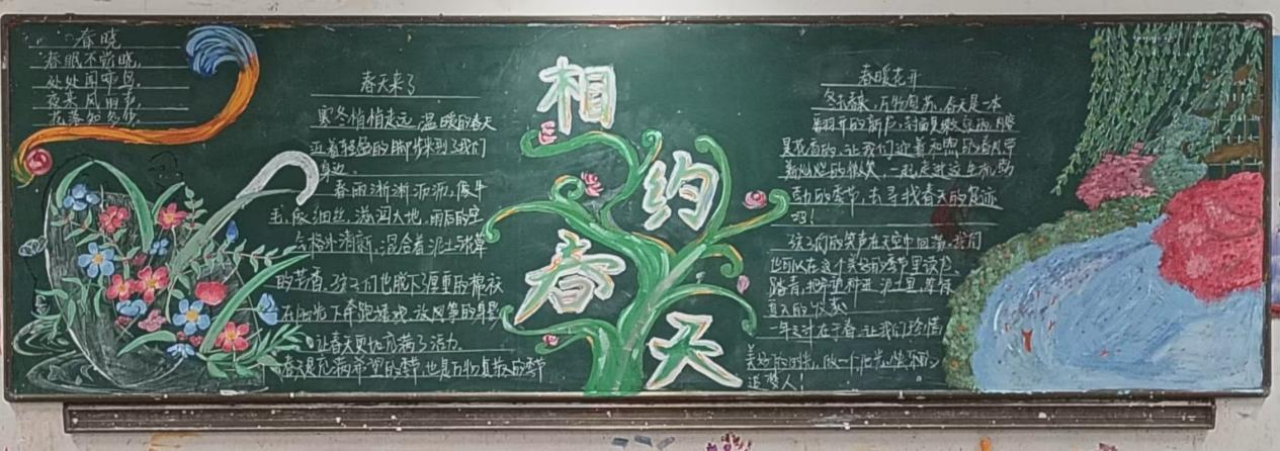 春晓
春眠不觉晓,
处处闻啼鸟.
夜来风雨声,
花落知多少.
春天来了
寒冬悄悄走远,温暖的春天
迈着轻盈的脚步来到了我们
身边.
春雨淅淅沥沥,像牛
毛,像细丝,滋润大地,雨后的空
气格外清新,混合着泥土与花草
的芳香,孩子们也脱下了厚重的棉衣
在 奔跑嬉戏,放风筝的身影
让春天更加充满了活力.
春天是充满希望的季节,也是万物复苏的季节
相约春天
春暖花开
冬去春来,万物复苏,春天是一本
翻开的新
是花香的,让我们迎着和煦的春风带
着 的微笑,一起走进这生机勃
勃的季节,去寻找春天的足迹
吧!
孩子们的笑声在天空中回荡,我们
也可以在这个美好的季节里读书、
踏青,把希望种进泥土里,等待
夏天的
一年之计在于春,让我们珍惜
美好的时光,做一个阳光
追梦人!